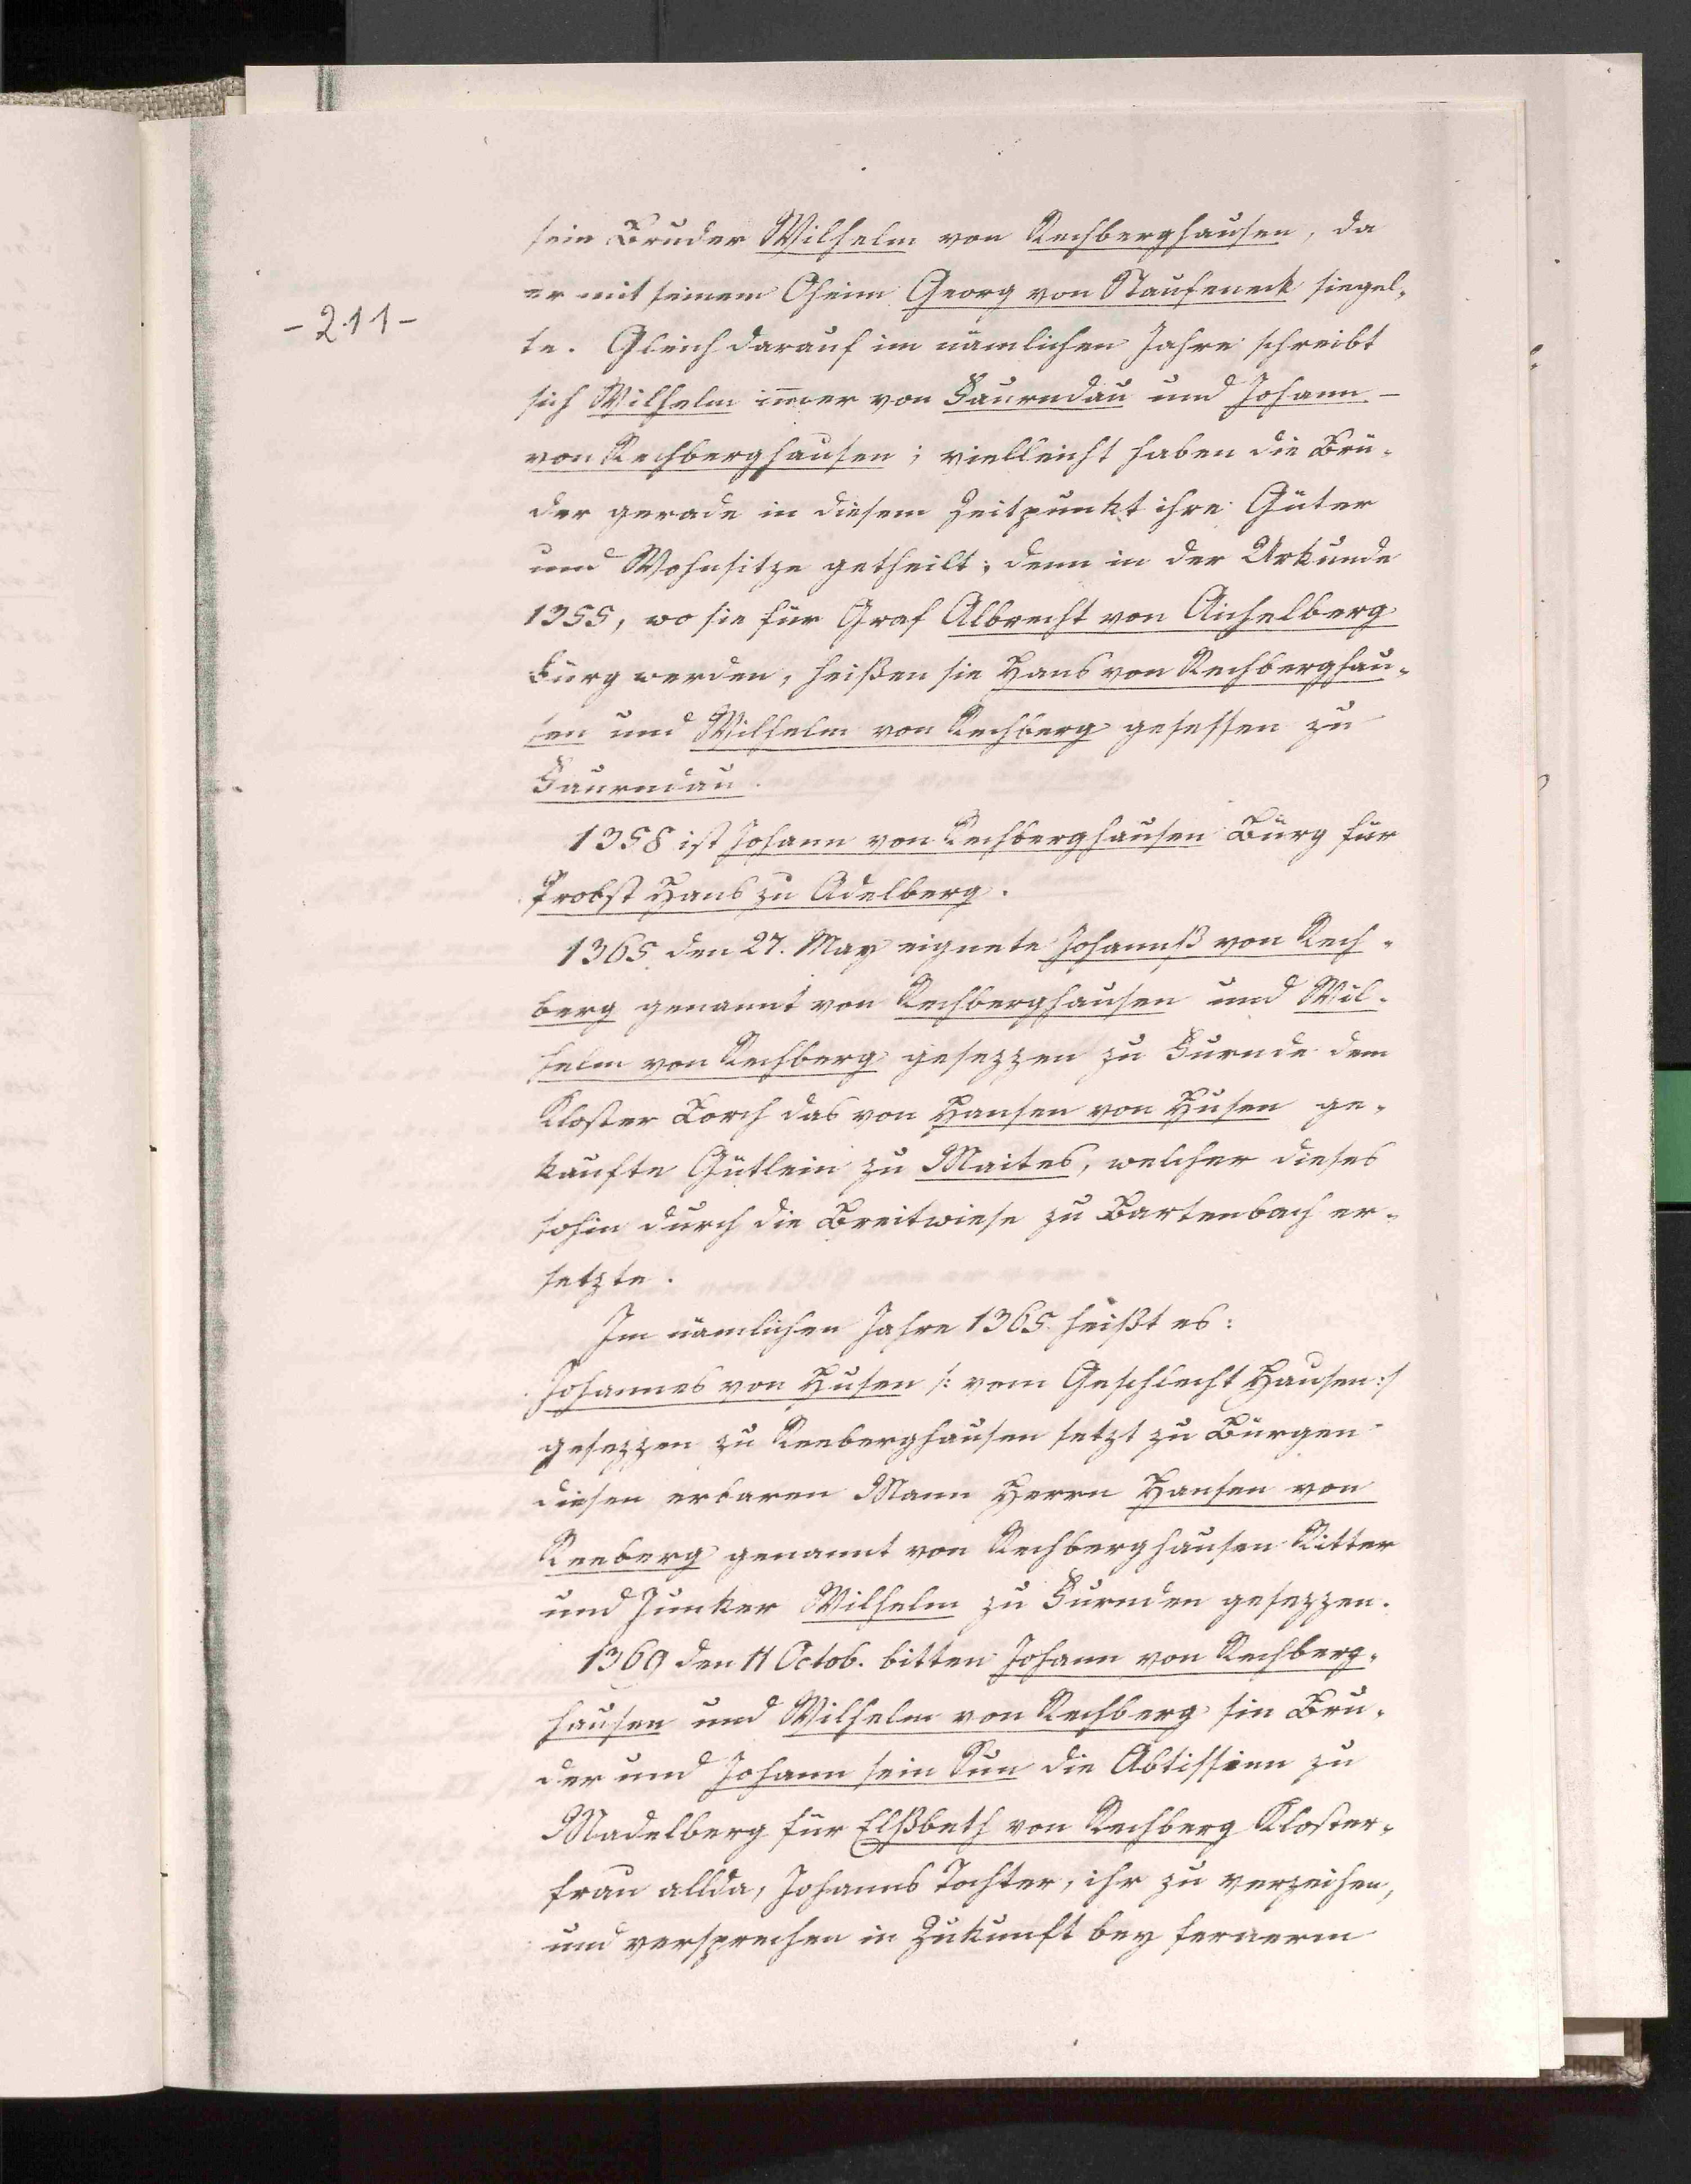 sein Bruder Wilhelm von Rechberghausen, da
er mit seinem Oheim Georg von Staufeneck siegel-
-211-
te. Gleich darauf im nämlichen Jahre schreibt
sich Wilhelm im̄er von Faurndau und Johann
von Rechberghausen; vielleicht haben die Brü-
der gerade in diesem Zeitpunkt ihre Güter
und Wohnsitze getheilt; denn in der Urkunde
1355, wo sie für Graf Albrecht von Aichelberg
Bürg werden, heißen sie Hans von Rechberghau-
sen und Wilhelm von Rechberg gesessen zu
Faurndau.
1358 ist Johann von Rechberghausen Bürg für
Probst Hans zu Adelberg.
1365 den 27. May eignete Johannß von Rech-
berg genannt von Rechberghausen und Wil-
helm von Rechberg gesezzen zu Furnde dem
Kloster Lorch das von Hansen von Husen ge-
kaufte Gütlein zu Maites, welcher dieses
sohin durch die Breitwiese zu Bartenbach er-
setzte.
Im nämlichen Jahre 1365 heißt es:
Johannes von Husen /: vom Geschlecht Hausen :/
gesezzen zu Reeberghausen setzt zu Bürgen
diesen erbaren Mann Herrn Hansen von
Reeberg genannt von Rechberghausen Ritter
und Junker Wilhelm zu Furnden gesezzen.
1369 den 11 Octob. bitten Johann von Rechberg-
hausen und Wilhelm von Rechberg sin Bru-
der und Johann sein Sun die Abtissinn zu
Madelberg für Elßbeth von Rechberg Kloster-
frau allda, Johanns Tochter, ihr zu verzeihen,
und versprechen in Zukunft bey fernerm